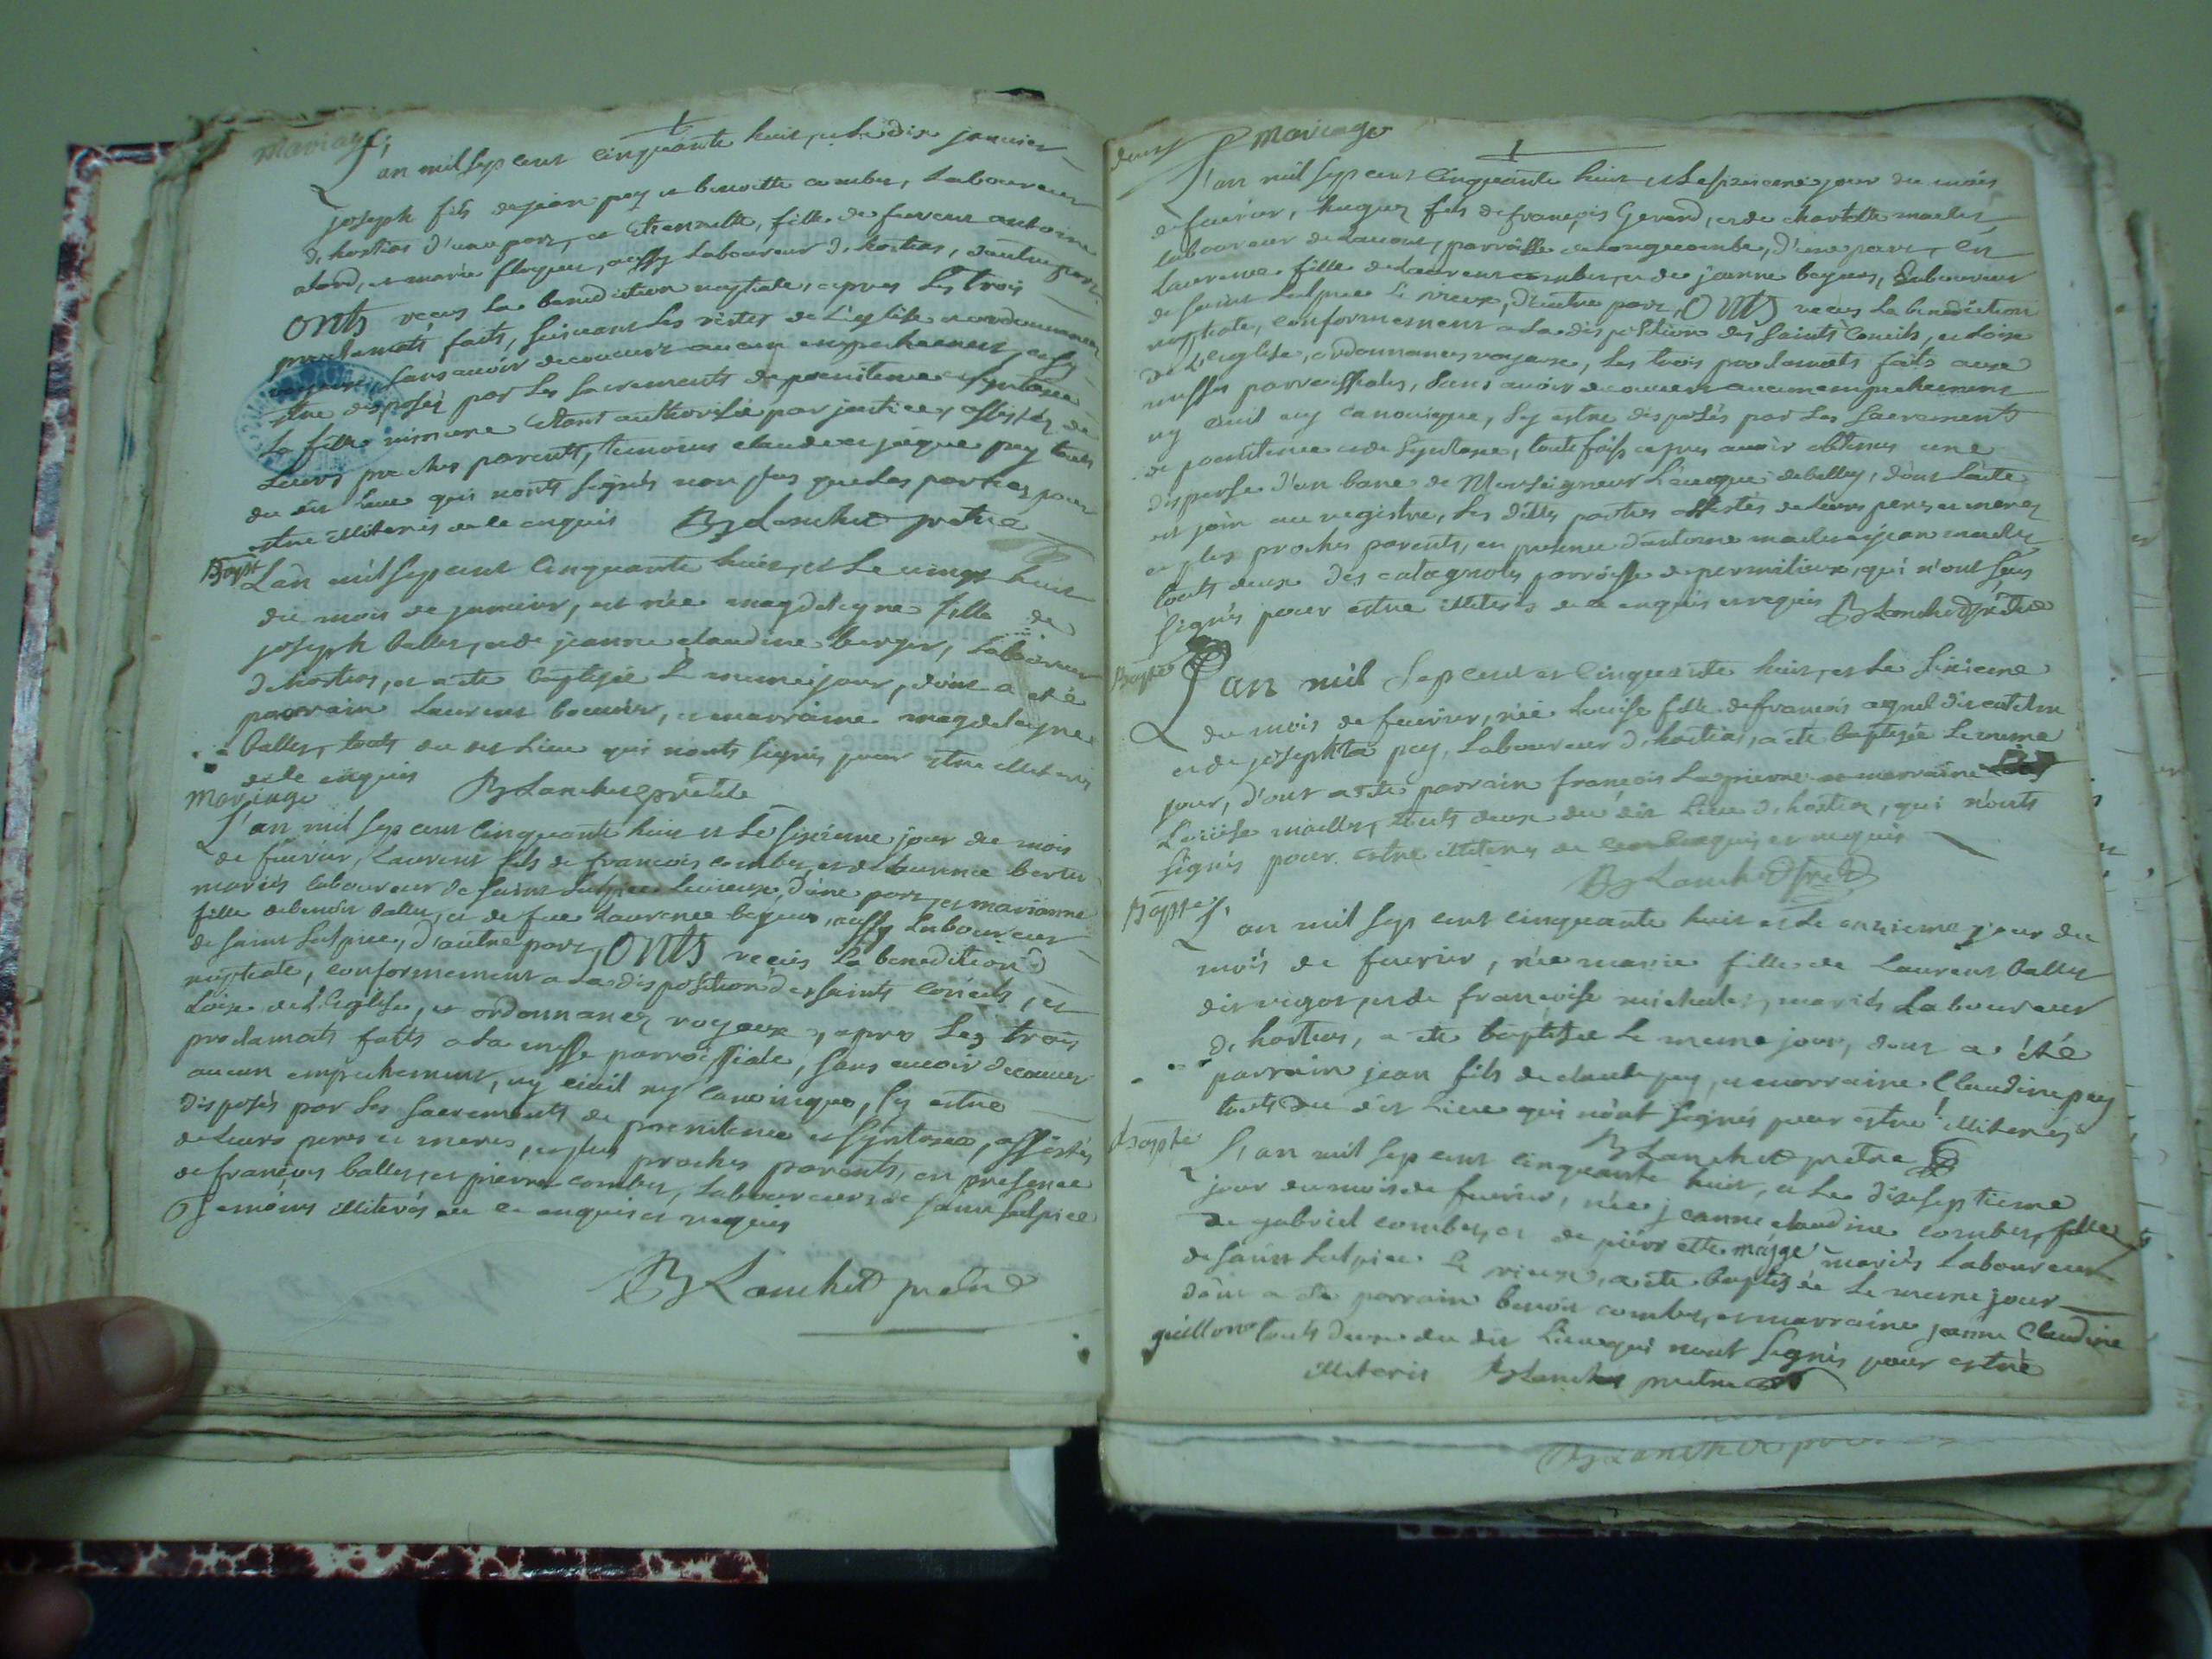 Mariage
L'an mil sept cent cinquante huit, et le dix janvier
joseph fils de jean pey et benoitte combet, Laboureur
d'hostias d'une part, et etiennette, fille de feu
abord, et marie floquet, aussy Laboureur d'hostias, d'autre part
Onts recus La benediction nuptiale, apres Les trois
proclamats faits, suivant Les rister de L'eglise et ordonnances
royaux, sans avoir decouvert aucun empechement, et sy
etre disposez par Les sacrements de poenitence et Syntaxe
La fille mineure etant authorisée par justice, assistez de
Leurs proches parents, temoins claude et jaque pey touts
du dit Lieu qui nonts signés non plus que Les parties pour
estre illiterés de ce enquis Blanchet pretre
Bapt
L'an mil sept cent Cinquante huit, et Le vingt huit
du mois de janvier, est née magdelegne fille de
joseph Ballet, et de jeanne claudine berger, Laboureur
d'hostias, et a eté baptisée Le meme jour, dont a eté
parrain Laurent, et marraine magdelegne
Ballet, touts du dit Lieu qui nonts signés pour estre illiterés
de ce enquis Blanchet pretre
Mariage
L'an mil sept cent Cinquante huit et Le sixieme jour du mois
de fevrier, Laurent fils de francois combet, et de Laurence bertet
mariés laboureur de saint Sulpice Le vieux, d'une part, et marianne
fille de benoit Ballet, et de feue Laurence beyeux, aussy Laboureur
de saint Sulpice, d'autre part, Onts recus La benediction
nuptiale, conformement a La disposition des saints Concils, et
Loix de L'eglise, et ordonnances royaux, apres Les trois
proclamats faits a La messe parroissiale, sans avoir decouvert
aucun empechement, ny civil ny Canonique, sy estre
disposés par Les sacrements de poenitence et Syntaxe, assistés
de Leurs peres et meres, et plus proches parents, en presence
de françois ballet, et pierre combet, Laboureurs de saint Sulpice
Temoins illiterés de ce enquis et requis
Blanchet pretre
deux
Mariage
L'an mil sept cent Cinquante huit et Le sixieme jour du mois
de fevrier, hugue fils de françois Gerard, et de charlotte maclet
laboureur de, parroisse de longecombe, d'une part, en
Laurence fille de Laurent combet, et de jeanne beyeux, Laboureur
de saint Sulpice Le vieux, d'autre part, Onts recus La benediction
nuptiale, conformement a La disposition des saints Concils, et loix
de L'eglise, ordonnances royaux, Les trois proclamats faits aux
messes parroissiales, sans avoir decouvert aucun empechement
ny civil ny canonique, sy estre disposés par Les Sacrements
de poenitence et de Syntaxe, toutefois apres avoir obtenus une
dispense d'un banc de Monseigneur L'eveque de belley, dont L'acte
est joint au registre, Les dittes parties assistés de Leurs peres et meres
et plus proches parents, en presence d'antoine maclet et jean maclet
touts deux des catagnoles parroisse de premilieux, qui n'ont sus
signés pour estre illiterés de ce enquis et requis Blanchet pretre
Bapte
L'an mil sept cent et Cinquante huit, et Le sixieme
du mois de fevrier, née Louise fille de francois agnel dit catelin
et de josephta pey, Laboureur d'hostias, a eté baptisée Le meme
jour, d'ont a eté parrain françois Lagrierre et marraine
Louise maclet, touts deux du dit Lieu d'hostias, qui n'onts
signés pour estre illiterés de ce enquis et requis
Blanchet pretre
Bapte
L'an mil sept cent cinquante huit et Le onzieme jour du
mois de fevrier, née marie fille de Laurent Ballet
dit vigot, et de françoise michalet, mariés Laboureur
d'hostias, a eté baptisée Le meme jour, dont a eté
parrain jean fils de claude pey, et marraine Claudine pey
touts du dit Lieu qui n'ont signés pour estre illiterés
Blanchet pretre
Bapte
L'an mil sept cent cinquante huit, et Le dixseptieme
jour du mois de fevrier, née jeanne claudine combet, fille
de gabriel combet, et de pierrette mange mariés Laboureur
de saint Sulpice Le vieux, a eté baptisée Le meme jour
dont a eté parrain benoit combet, et marraine jeanne Claudine
guillon touts deux du dit Lieu qui n'ont signés pour estre
illiterés Blanchet pretre
Blanchet pretre